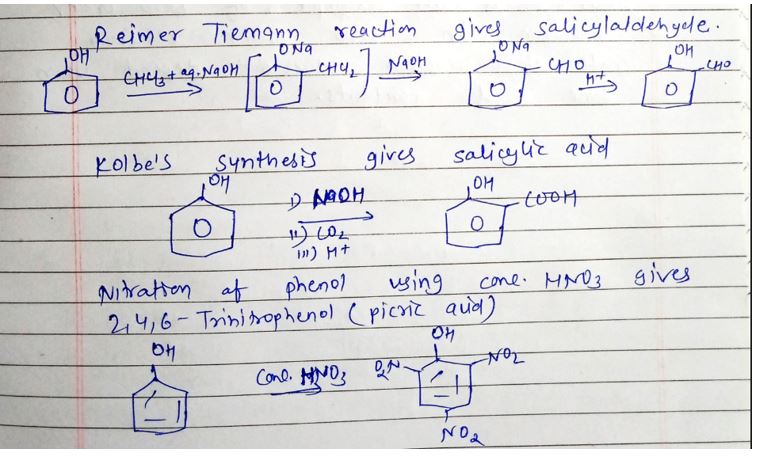 Reimer Tiemann reaction gives salicylaldehyde.
OH CHCl3 + aq. NaOH ONa CHCl2 NaOH ONa CHO H+ OH CHO
Kolbe's synthesis gives salicylic acid
OH i) NaOH OH COOH
ii) CO2
iii) H+
Nitration of phenol using conc. HNO3 gives
2,4,6- Trinitrophenol (picric acid)
OH Conc. HNO3 OH O2N NO2
NO2